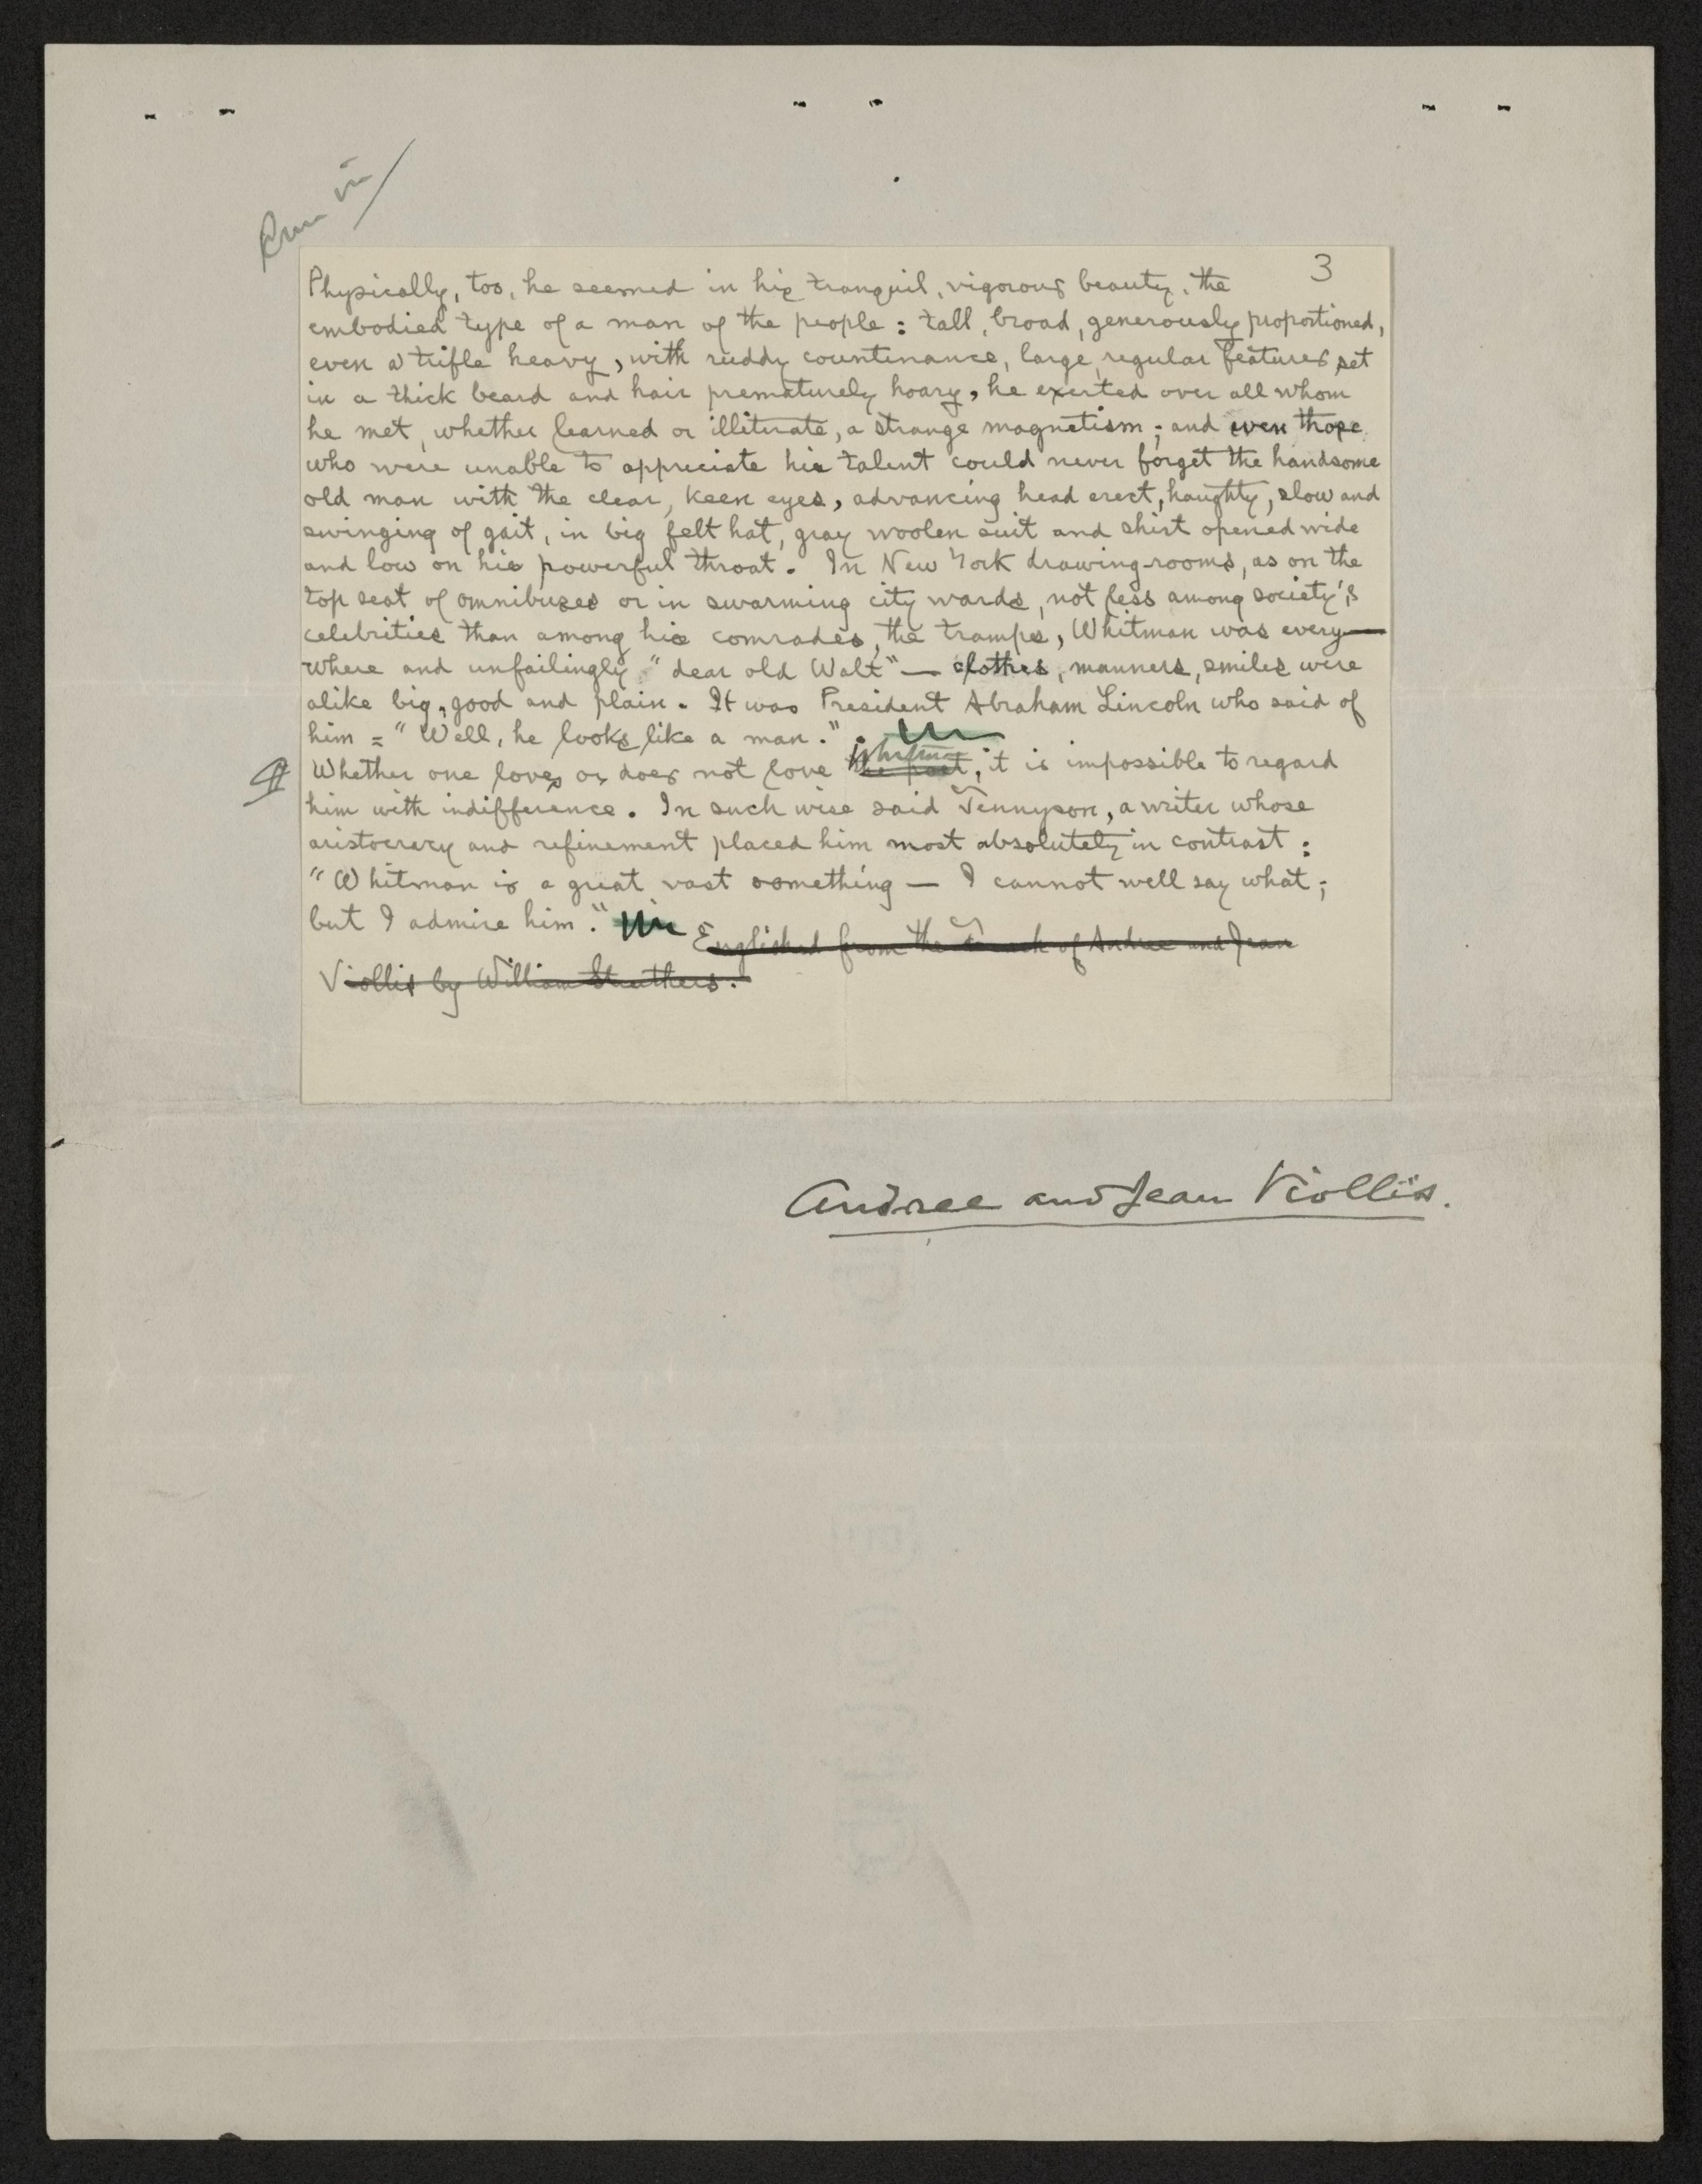 Run in/
3
Physically, too, he seemed in his tranquil, vigorous beauty, the
embodied type of a man of the people: tall, broad, generously proportioned,
even a trifle heavy, with ruddy countenance, large, regular features set
in a thick beard and hair prematurely hoary, he exerted over all whom
he met, whether learned or illiterate, a strange magnetism; and even those
who were unable to appreciate his talent could never forget the handsome
old man with the clear, keen eyes, advancing head erect, haughty, slow and
swinging of gait, in big felt hat, gray woolen suit and shirt opened wide
and low on his powerful throat. In New York drawing-rooms, as on the
top seat of omnibuses or in swarming city wards, not less among society's
celebrities than among his comrades, the tramps, Whitman was every-
where and unfailingly "dear old Walt" — clothes, manners, smiles were
alike big, good and plain. It was President Abraham Lincoln who said of
him = "Well, he looks like a man."
¶ Whether one loves or does not love the poet Whitman, it is impossible to regard
him with indifference. In such wise said Tennyson, a writer whose
aristocracy and refinement placed him most absolutely in contrast:
"Whitman is a great vast something — I cannot well say what;
but I admire him."
Englished from the French of Andree and Jean
Viollis by William Struthers.
Andree and Jean Viollis.